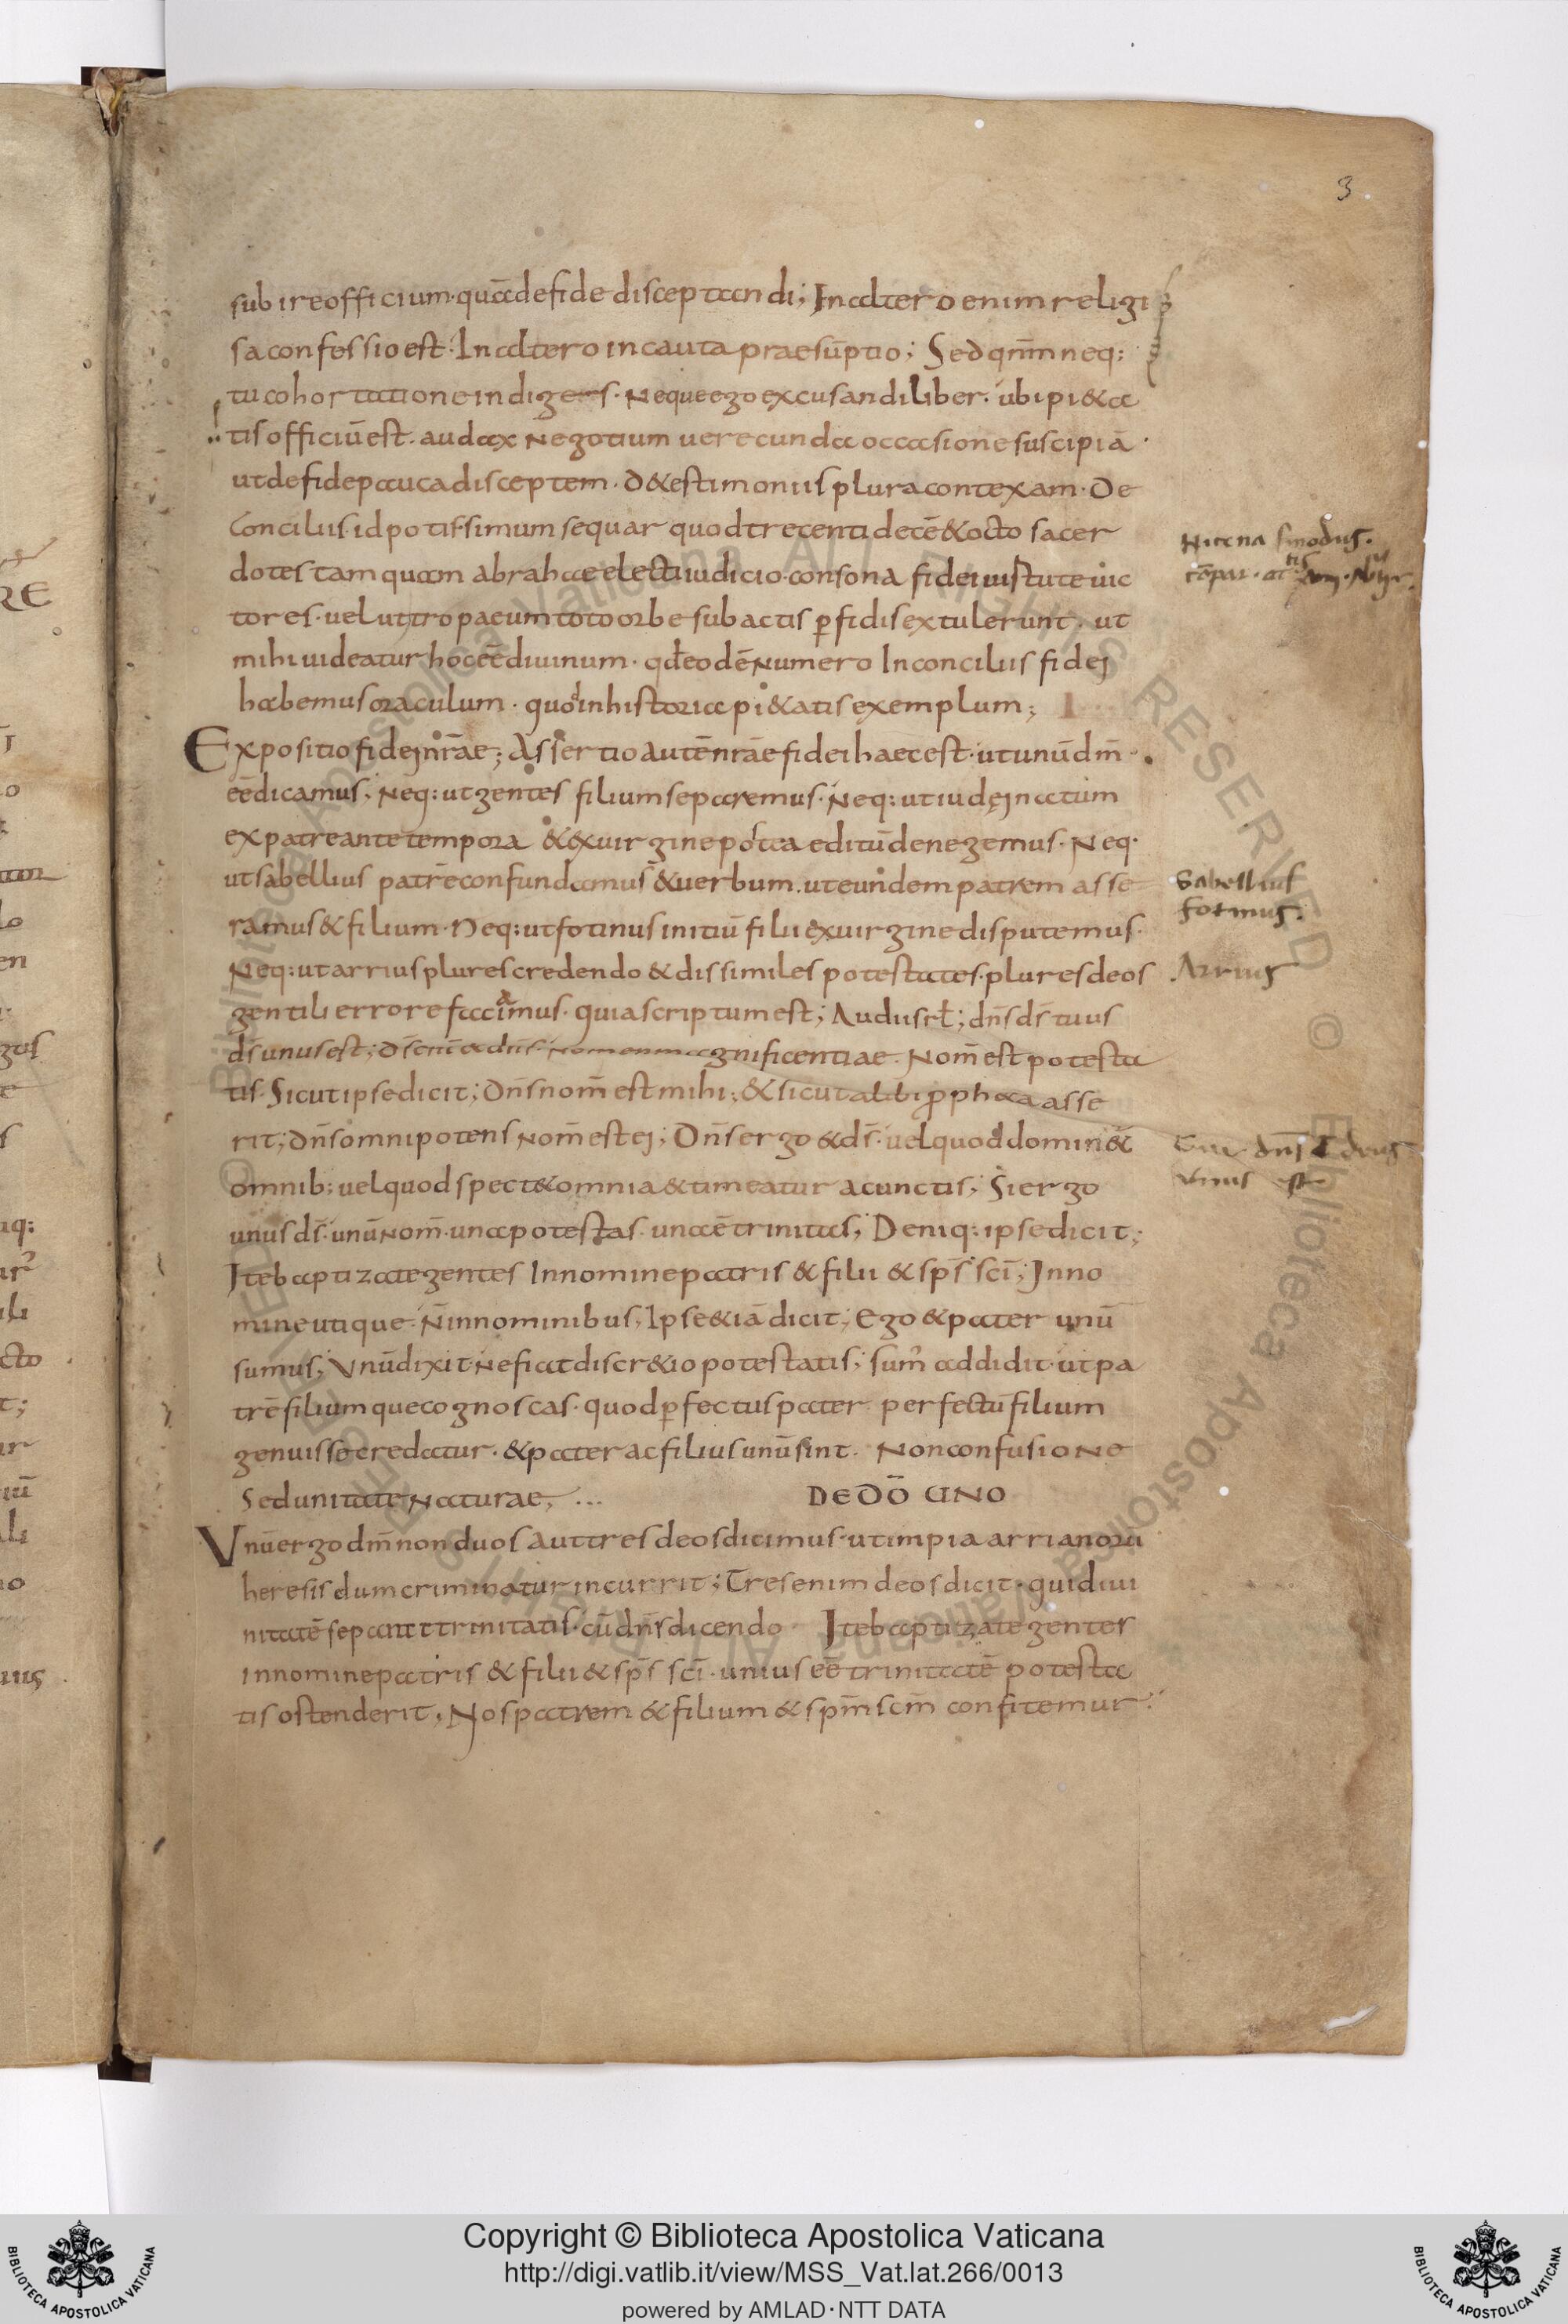 3
subire officium quā de fide disceptandi; In altero enim religi
sa confessio est. In altero incauta praesūptio; Sed qnm̄ neq;
tu cohortatione indiges. Neque ego excusandi liber. ubi pi&a
tis officiū est. audax negotium uerecunda occasione suscipiā
ut de fide pauca disceptem. d&estimoniis plura contexam. De
Conciliis id potissimum sequar quod trecenti decē & octo sacer
dotes tamquam abrahae electi iudicio consona fidei uirtute uic
tores. uelut tropaeum toto orbe subactis ꝑfidis extulerunt. ut
mihi uideatur hoc eē diuinum. qđ eodē numero In conciliis fidei
habemus oraculum. quod in historia pi&atis exemplum;
Expositio fidei nrāe; Assertio autē nrāe fidei haec est. ut unū dm̄
eē dicamus. Neq: ut gentes filium separemus. Neq: ut iudęi natum
ex patre ante tempora & ex uirgine postea editū denegemus. Neq.
ut sabellius patrē confundamus & uerbum. ut eundem patrem asse
ramus & filium. Neq: ut fotinus initiū filii ex uirgine disputemus.
Neq: ut arrius plures credendo & dissimiles potestates. plures deos
gentili errore faciamus. quia scriptum est; Audi isrł; dn̄s ds̄ tuus
ds̄ unus est; ds̄ enī & dn̄s nomen magnificentiae. Nom̄ est potesta
tis. Sicut ipse dicit; Dn̄s nom̄ est mihi; & sicut alibi ꝓph&a asse
rit; dn̄s omnipotens nom̄ est ei; Dn̄s ergo & ds̄. uel quod domin&
omnib; uel quod spect& omnia & timeatur a cunctis; Si ergo
unus ds̄. unū nom̄. una potestas. una ē trinitas; Deniq: ipse dicit;
Ite baptizate gentes In nomine patris & filii & sps̄ scī; In no
mine utique. N̄ in nominibus; Ipse &iā dicit; Ego & pater unū
sumus; Vnū dixit. Ne fiat discr&io potestatis; sum̄ addidit. ut pa
trē filiumque cognoscas. quod ꝑfectus pater perfectū filium
genuisse credatur. & pater ac filius unū sint. Non confusione
Sed unitate naturae,...
DE DŌ UNO
Vnū ergo dm̄ non duos aut tres deos dicimus. ut impia arrianorū
heresis dum criminatur incurrit; Tres enim deos dicit. qui diui
nitatē separat trinitatis. cū dn̄s dicendo Ite baptizate gentes
in nomine patris & filii & sps̄ scī. unius eē trinitatē potesta
tis ostenderit. Nos patrem & filium & spm̄ scm̄ confitemur.
Nicena sinodus.
Sabellius
fotinus.
Arrius
dn̄s deus
unus est
Copyright © Biblioteca Apostolica Vaticana
http://digi.vatlib.it/view/MSS_Vat.lat.266/0013
powered by AMLAD·NTT DATA
BIBLIOTECA APOSTOLICA VATICANA
BIBLIOTECA APOSTOLICA VATICANA